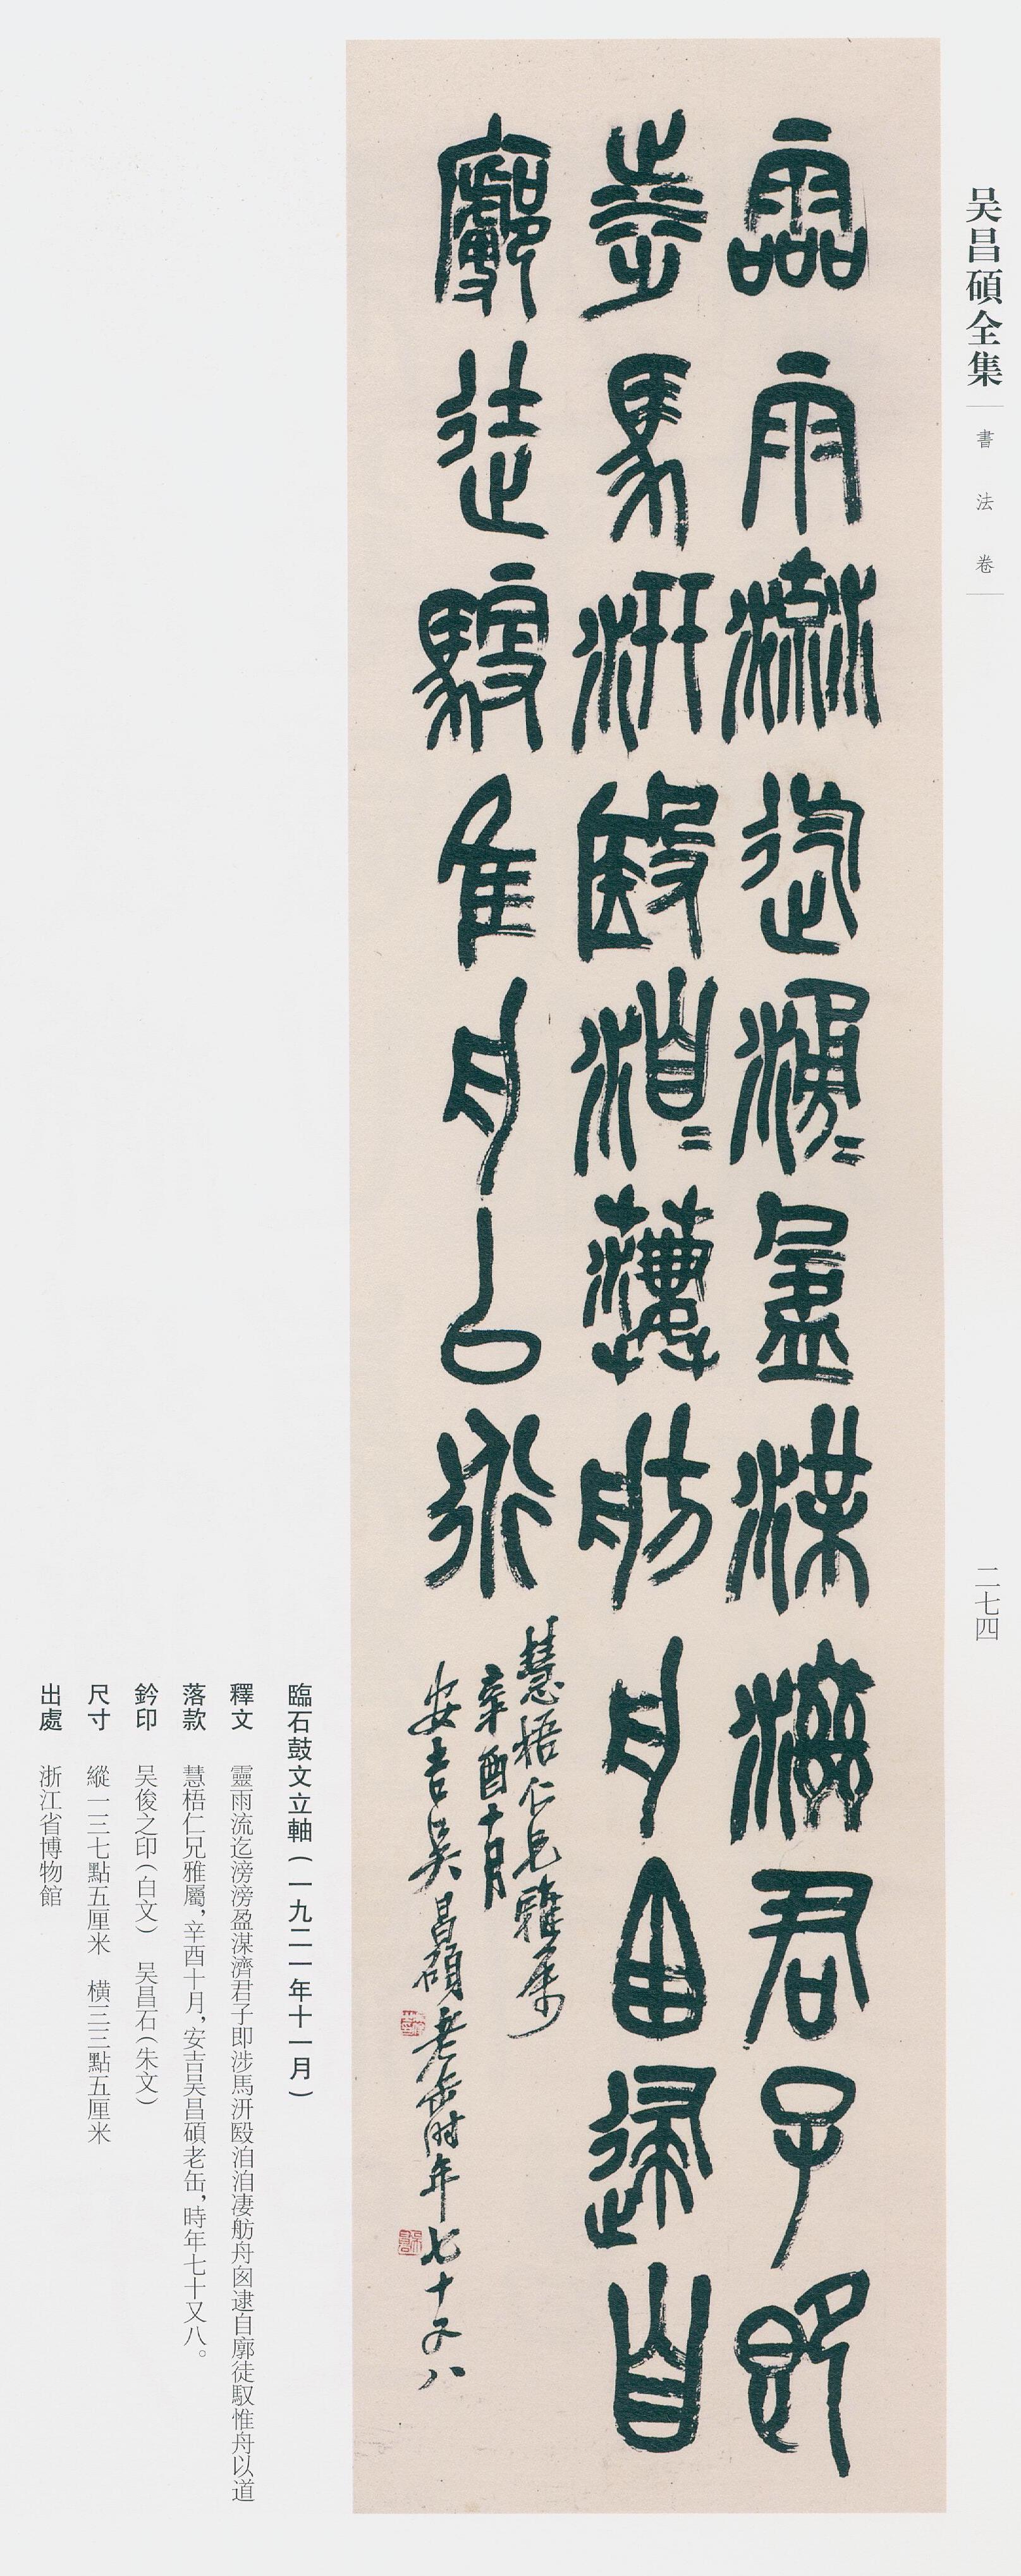 吴昌碩全集
書法卷
二七四
靈雨流迄滂滂盈渫濟君子即
涉馬汧殹洎洎淒舫舟囪逮自
廓徒馭惟舟以道
慧梧仁兄雅屬
辛酉十月
安吉吴昌碩老缶時年七十又八
臨石鼓文立軸(一九二一年十一月)
釋文 靈雨流迄滂滂盈渫濟君子即涉馬汧殹洎洎淒舫舟囪逮自廓徒馭惟舟以道
落款 慧梧仁兄雅屬,辛酉十月,安吉吴昌碩老缶,時年七十又八。
鈐印 吴俊之印(白文) 吴昌石(朱文)
尺寸 縱一三七點五厘米 橫三三點五厘米
出處 浙江省博物館